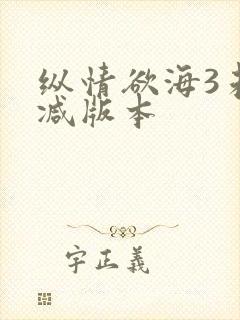 纵情欲海3
减版本
字正義